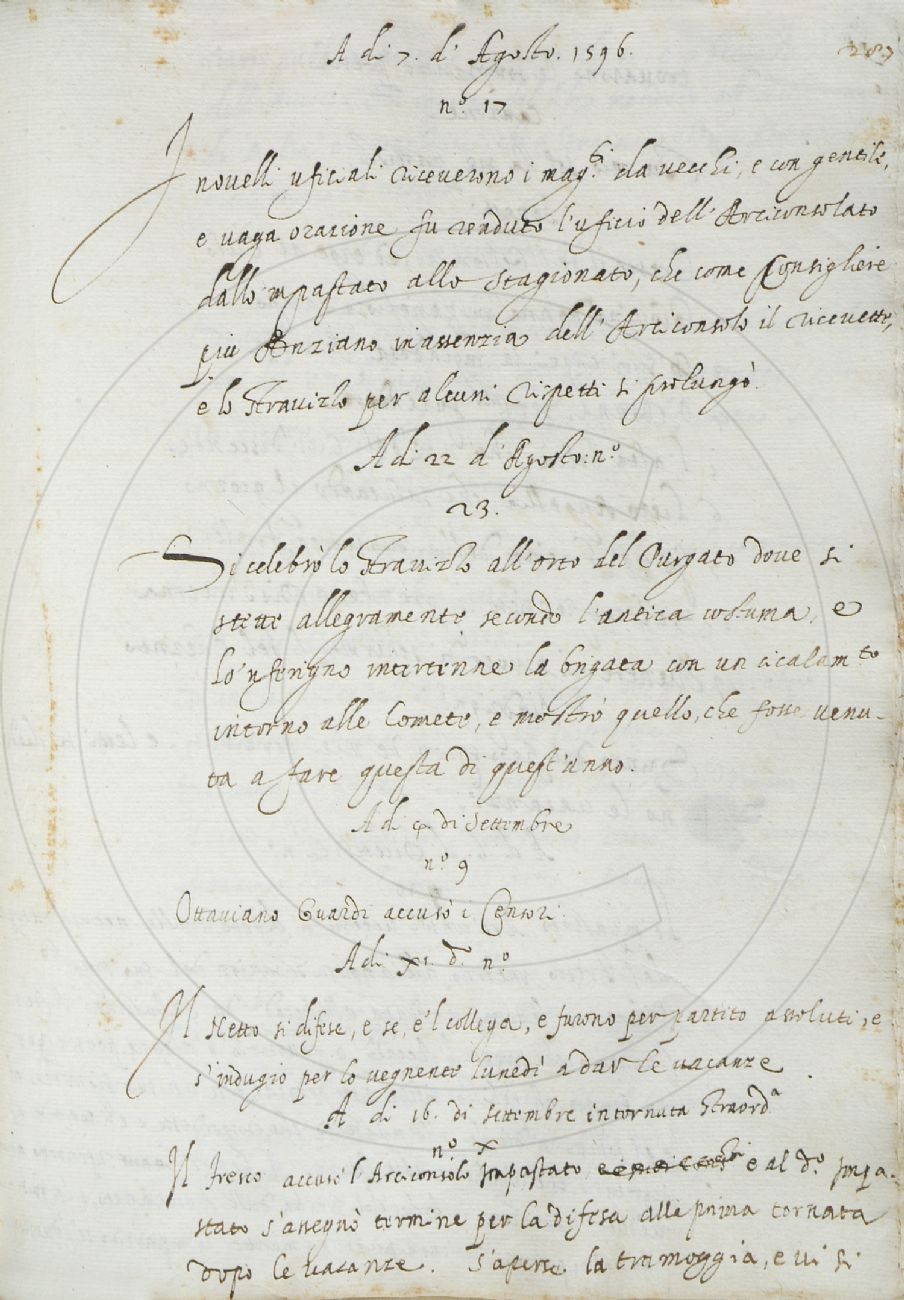 A di 7. d'Agosto. 1596.
287
n.° 17
I novelli uficiali riceverono i mag.ti da vecchi, e con gentile,
e vaga orazione fu renduto l'uficio dell'Arciconsolato
dallo 'mpastato allo stagionato, che come Consigliere
piu Anziano in assenzia dell'Arciconsolo il ricevette,
e lo stravizzo per alcuni rispetti si prolungò.
A di 22 d'Agosto: n.°
23.
Si celebrò lo stravizzo all'orto del Purgato dove si
stette allegramente secondo l'antica costuma, e
lo 'nferigno intertenne la brigata con un cicalam.to
intorno alle Comete, e mostrò quello, che fosse venu-
ta a fare questa di quest'anno.
A di 4. di Settembre
n.° 9
Ottaviano Guardi accusò i Censori.
A di XI. d.° n.°
Il Netto si difese, e se, e 'l collega, e furono per partito assoluti, e
s'indugio per lo vegnente lunedì a dar le vacanze
A di 16. di settembre in tornata straord.a
n.° X
Il fresco accusò l'Arciconsolo Impastato e al d.° Impa-
stato s'assegnò termine per la difesa alla prima tornata
dopo le vacanze. S'aperse la tramoggia, e vi si